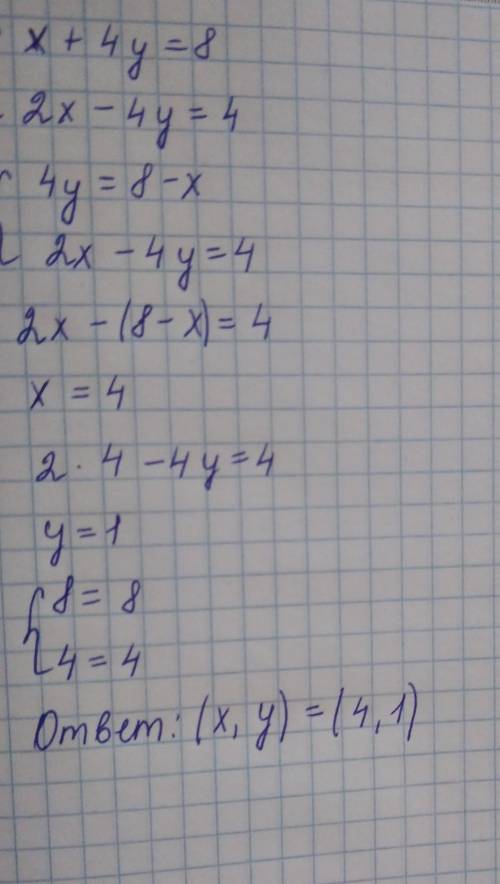 x + 4y = 8
2x - 4y = 4
4y = 8 - x
2x - 4y = 4
2x - (8 - x) = 4
x = 4
2 · 4 - 4y = 4
y = 1
8 = 8
4 = 4
Ответ: (x, y) = (4, 1)